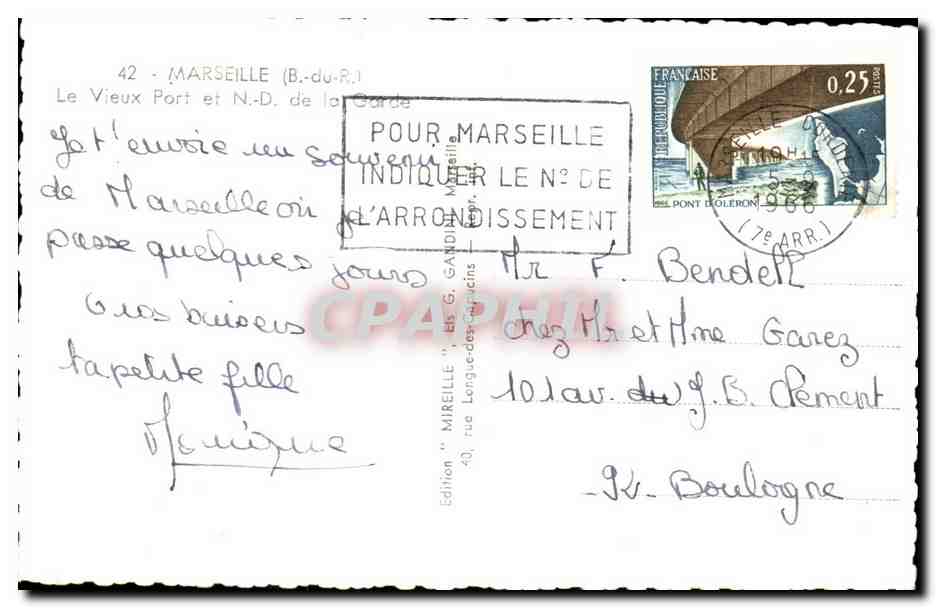 42 - MARSEILLE (B.-du-R.)
Le Vieux Port et N.-D. de la Garde
Je t'envoie un souvenir
de Marseille où je
passe quelques jours
Gros baisers
ta petite fille
Monique
POUR MARSEILLE
INDIQUER LE No DE
L'ARRONDISSEMENT
Edition " MIREILLE ", Ets G. GANDINI, Marseille
40, rue Longue-des-Capucins — Repr. int.
REPUBLIQUE FRANÇAISE
0,25 POSTES
1966 PONT D'OLERON
MARSEILLE
19H
5-9
1966
(7e ARR.)
Mr F. Bendell
chez Mr et Mme Garez
101 av. du J. B. Clément
Boulogne
CPAPHIL